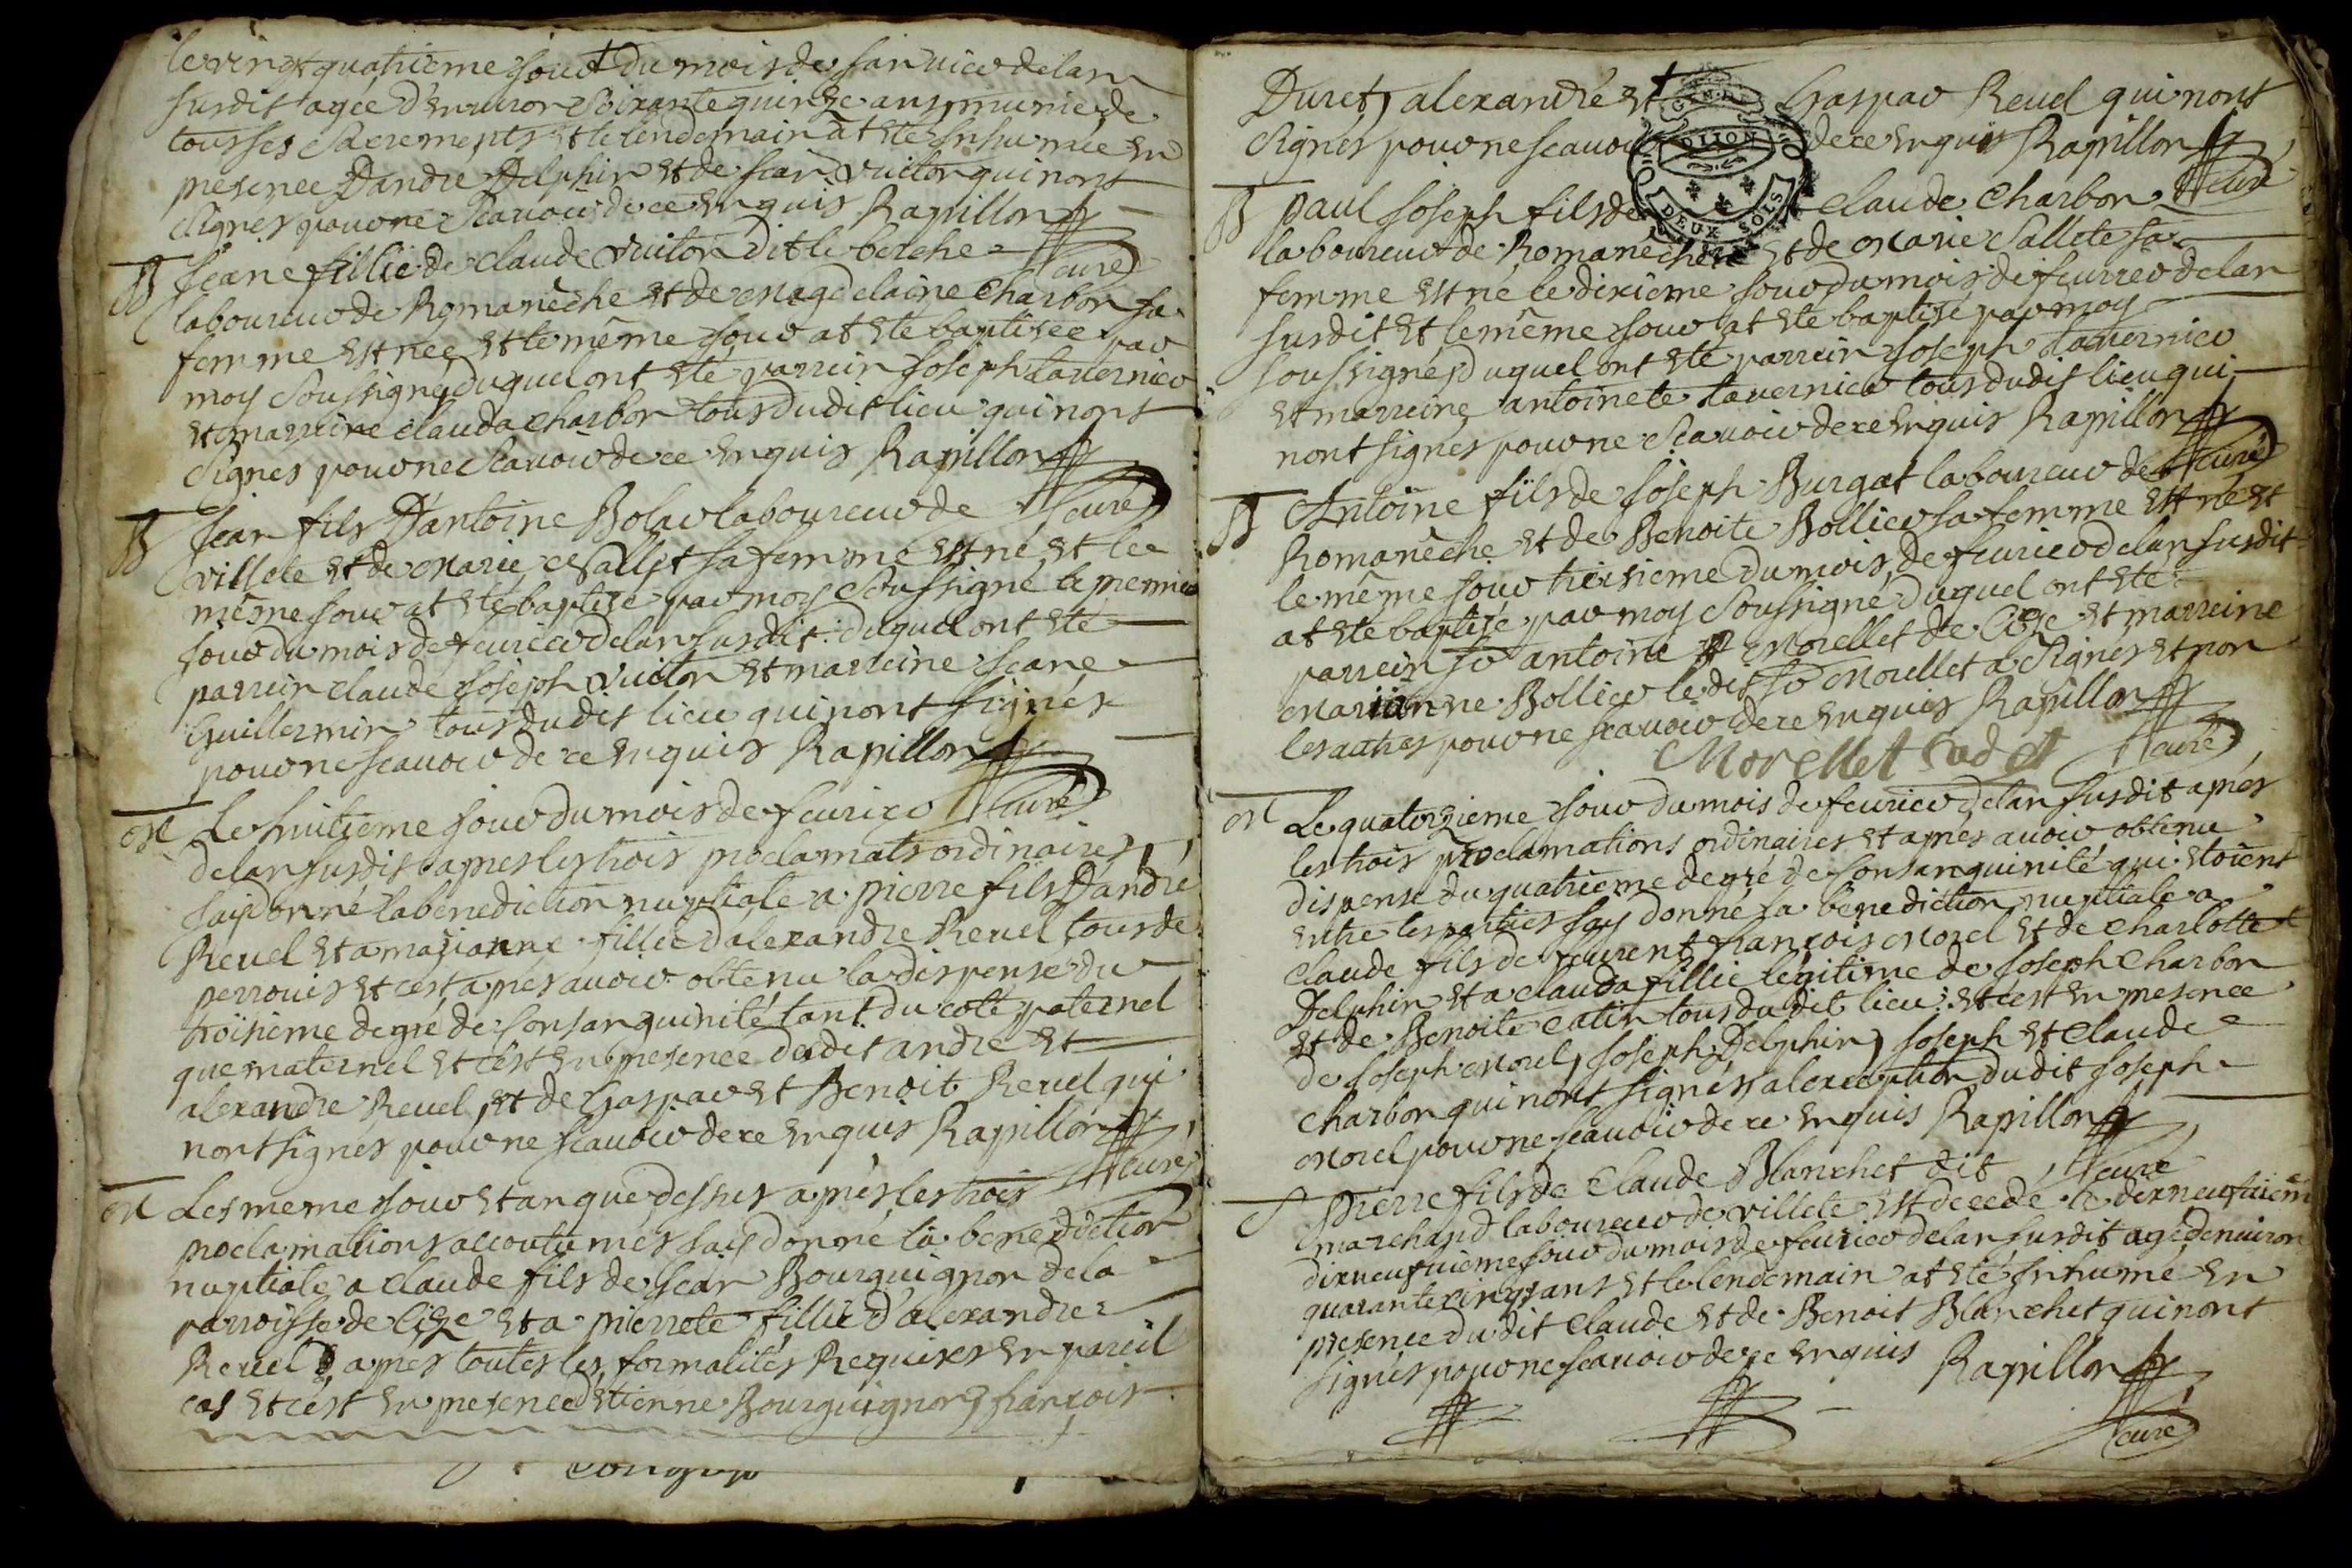 le vingt quatrieme jour du mois de januier de lan
susdit agée d'enuiron soixante quinze ans munie de
tous ses sacrements et le lendemain at eté inhumée en
presence Dandre Delphin et de jean vuiton qui nont
signés pour ne scauoir de ce enquis Rapillon
curé
B Jeane fillie de claude vuiton dit le berche
laboureur de Romanêche et de magdelaine charbon sa
femme est née et le même jour at eté baptisée par
moy soussigné duquel ont eté parrein joseph tauernier
et marreine clauda charbon tous dudit lieu qui nont
signés pour ne scauoir de ce enquis Rapillon
curé
B jean fils D'antoine Bolar laboureur de
villete et de marie sallet sa femme est né et le
même jour at eté baptizé par moy soussigné le premier
jour du mois de feurier de lan susdit duquel ont eté
parrein claude joseph vuiton et marreine jeane
Guillermin tous dudit lieu qui nont signés
pour ne scauoir de ce enquis Rapillon
curé
M Le huitieme jour du mois de feurier
de lan susdit apres les trois proclamats ordinaires
jay donné la benediction nuptiale a pierre fils Dandré
Reuel et a marianne fillie dalexandre Reuel tous de
perrouis et cest apres auoir obtenu la dispense du
troisieme degré de consanguinité tant du coté paternel
que maternel et cest en presence dudit andre et
alexandre Reuel, et de Gaspar et Benoit Reuel qui
nont signés pour ne scauoir de ce enquis Rapillon
curé
M Les meme jour et an que dessus apres les trois
proclamations accoutumés jay donné la benediction
nuptiale a claude fils de jean Bourguignon de la
parroisse de cize et a pierrete fillie d'alexandre
Reuel, apres toutes les formalités Requises en pareil
cas et cest en presence detienne Bourguignon, francois
Duret, alexandre et Gaspar Reuel qui nont
signés pour ne scauoir de ce enquis Rapillon
curé
DIJON
DEUX SOLS
B paul joseph fils de claude charbon
laboureur de Romanêche et de marie Sallete sa
femme est né le dixieme jour du mois de feurier de lan
susdit et le même jour at eté baptisé par moy
soussigné, duquel ont eté parrein joseph tauernier
et marreine antoinete tauernier tous dudit lieu qui
nont signés pour ne scauoir de ce enquis Rapillon
curé
B Antoine fils de joseph Burgat laboureur de
Romanêche et de Benoite Bollier sa femme est né et
le même jour treisieme du mois de feurier de lan susdit
at eté baptizé par moy soussigné duquel ont eté
parrein sr antoine morellet de Cize et marreine
marianne Bollier ledit sr morellet a signés et non
les autres pour ne scauoir de ce enquis Rapillon
Morellet Cadet
curé
M Le quatorzieme jour du mois de feurier de lan susdit apres
les trois proclamations ordinaires et apres auoir obtenu
dispense du quatrieme degré de consanguinité qui etoient
entre les parties jay donné la benediction nuptiale a
claude fils de feu rent francois morel et de charlotte
Delphin et a clauda fillie legitime de joseph charbon
et de Benoite catin tous dudit lieu et cest en presence
de joseph morel, joseph Delphin, joseph et claude
charbon qui nont signés a lexception dudit joseph
morel pour ne scauoir de ce enquis Rapillon
curé
S Pierre fils de Claude Blanchet dit
marchand laboureur de villete est decedé le dixneufuiem
dixneufuieme jour du mois de feurier de lan susdit agé denuiron
quarante cinq ans et le lendemain at eté inhumé en
presence dudit claude et de Benoit Blanchet qui nont
signés pour ne scauoir de ce enquis Rapillon
curé